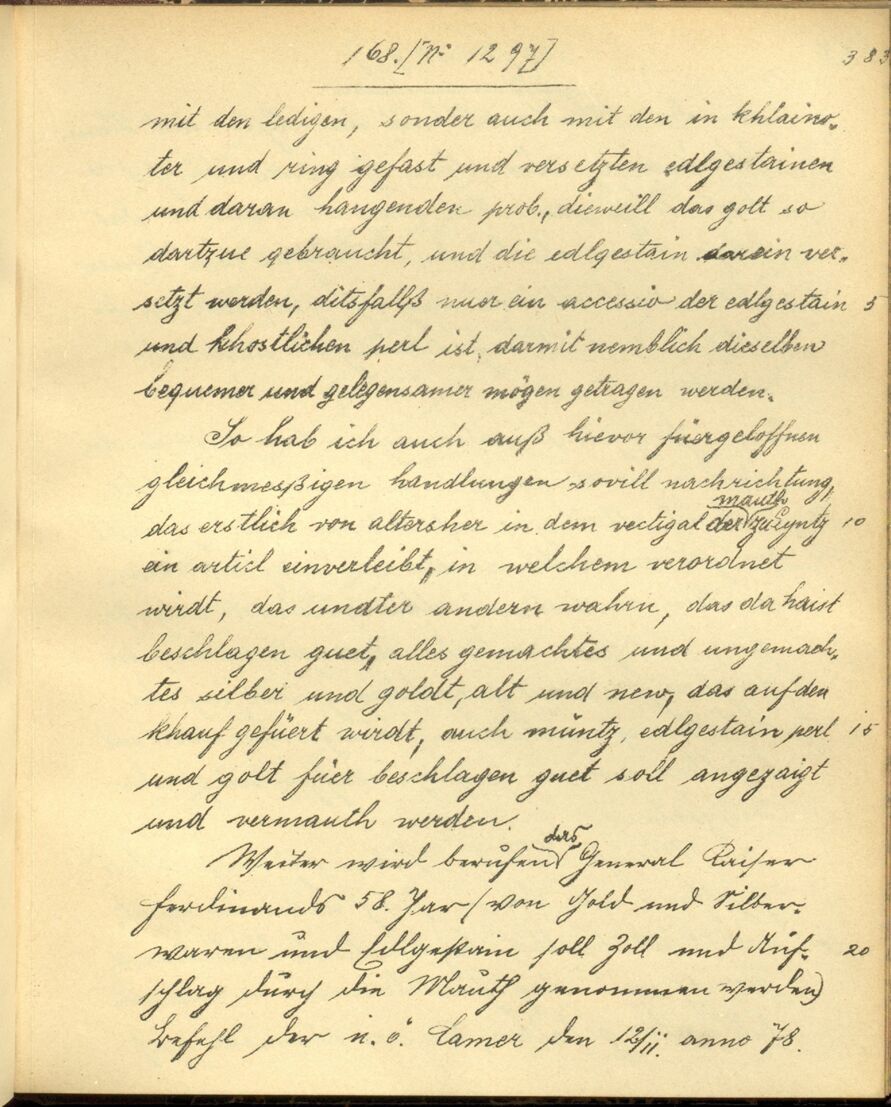 168. [N: 1297] 383
mit den ledigen, sonder auch mit den in khlaino-
ter und ring gefast und versetzten edlgestainen
und daran hangenden prob., dieweill das golt so
dartzue gebraucht, und die edlgestain darein ver-
setzt werden, ditsfallß nuer ein accessio der edlgestain 5
und khostlichen perl ist, darmit nemblich dieselben
bequemer und gelegensamer mögen getragen werden.
So hab ich auch auß hievor füergeloffnen
gleichmeßigen handlungen sovill nachrichtung,
mauth
das erstlich von altersher in dem vectigal der zu Lyntz 10
ein articl einverleibt, in welchem verordnet
wirdt, das undter andern wahrn, das da haist
beschlagen guet, alles gemachtes und ungemach-
tes silber und goldt, alt und new, das auf den
khauf gefüert wirdt, auch müntz, edlgestain perl 15
und golt füer beschlagen guet soll angezaigt
und vermauth werden.
das
Weiter wird berufen General Kaiser
Ferdinands 58. Jar (von Gold und Silber-
waren und Edlgestain soll Zoll und Auf- 20
schlag durch die Mauth genommen werden)
Befehl der n. ö. Camer den 12/II. anno 78.